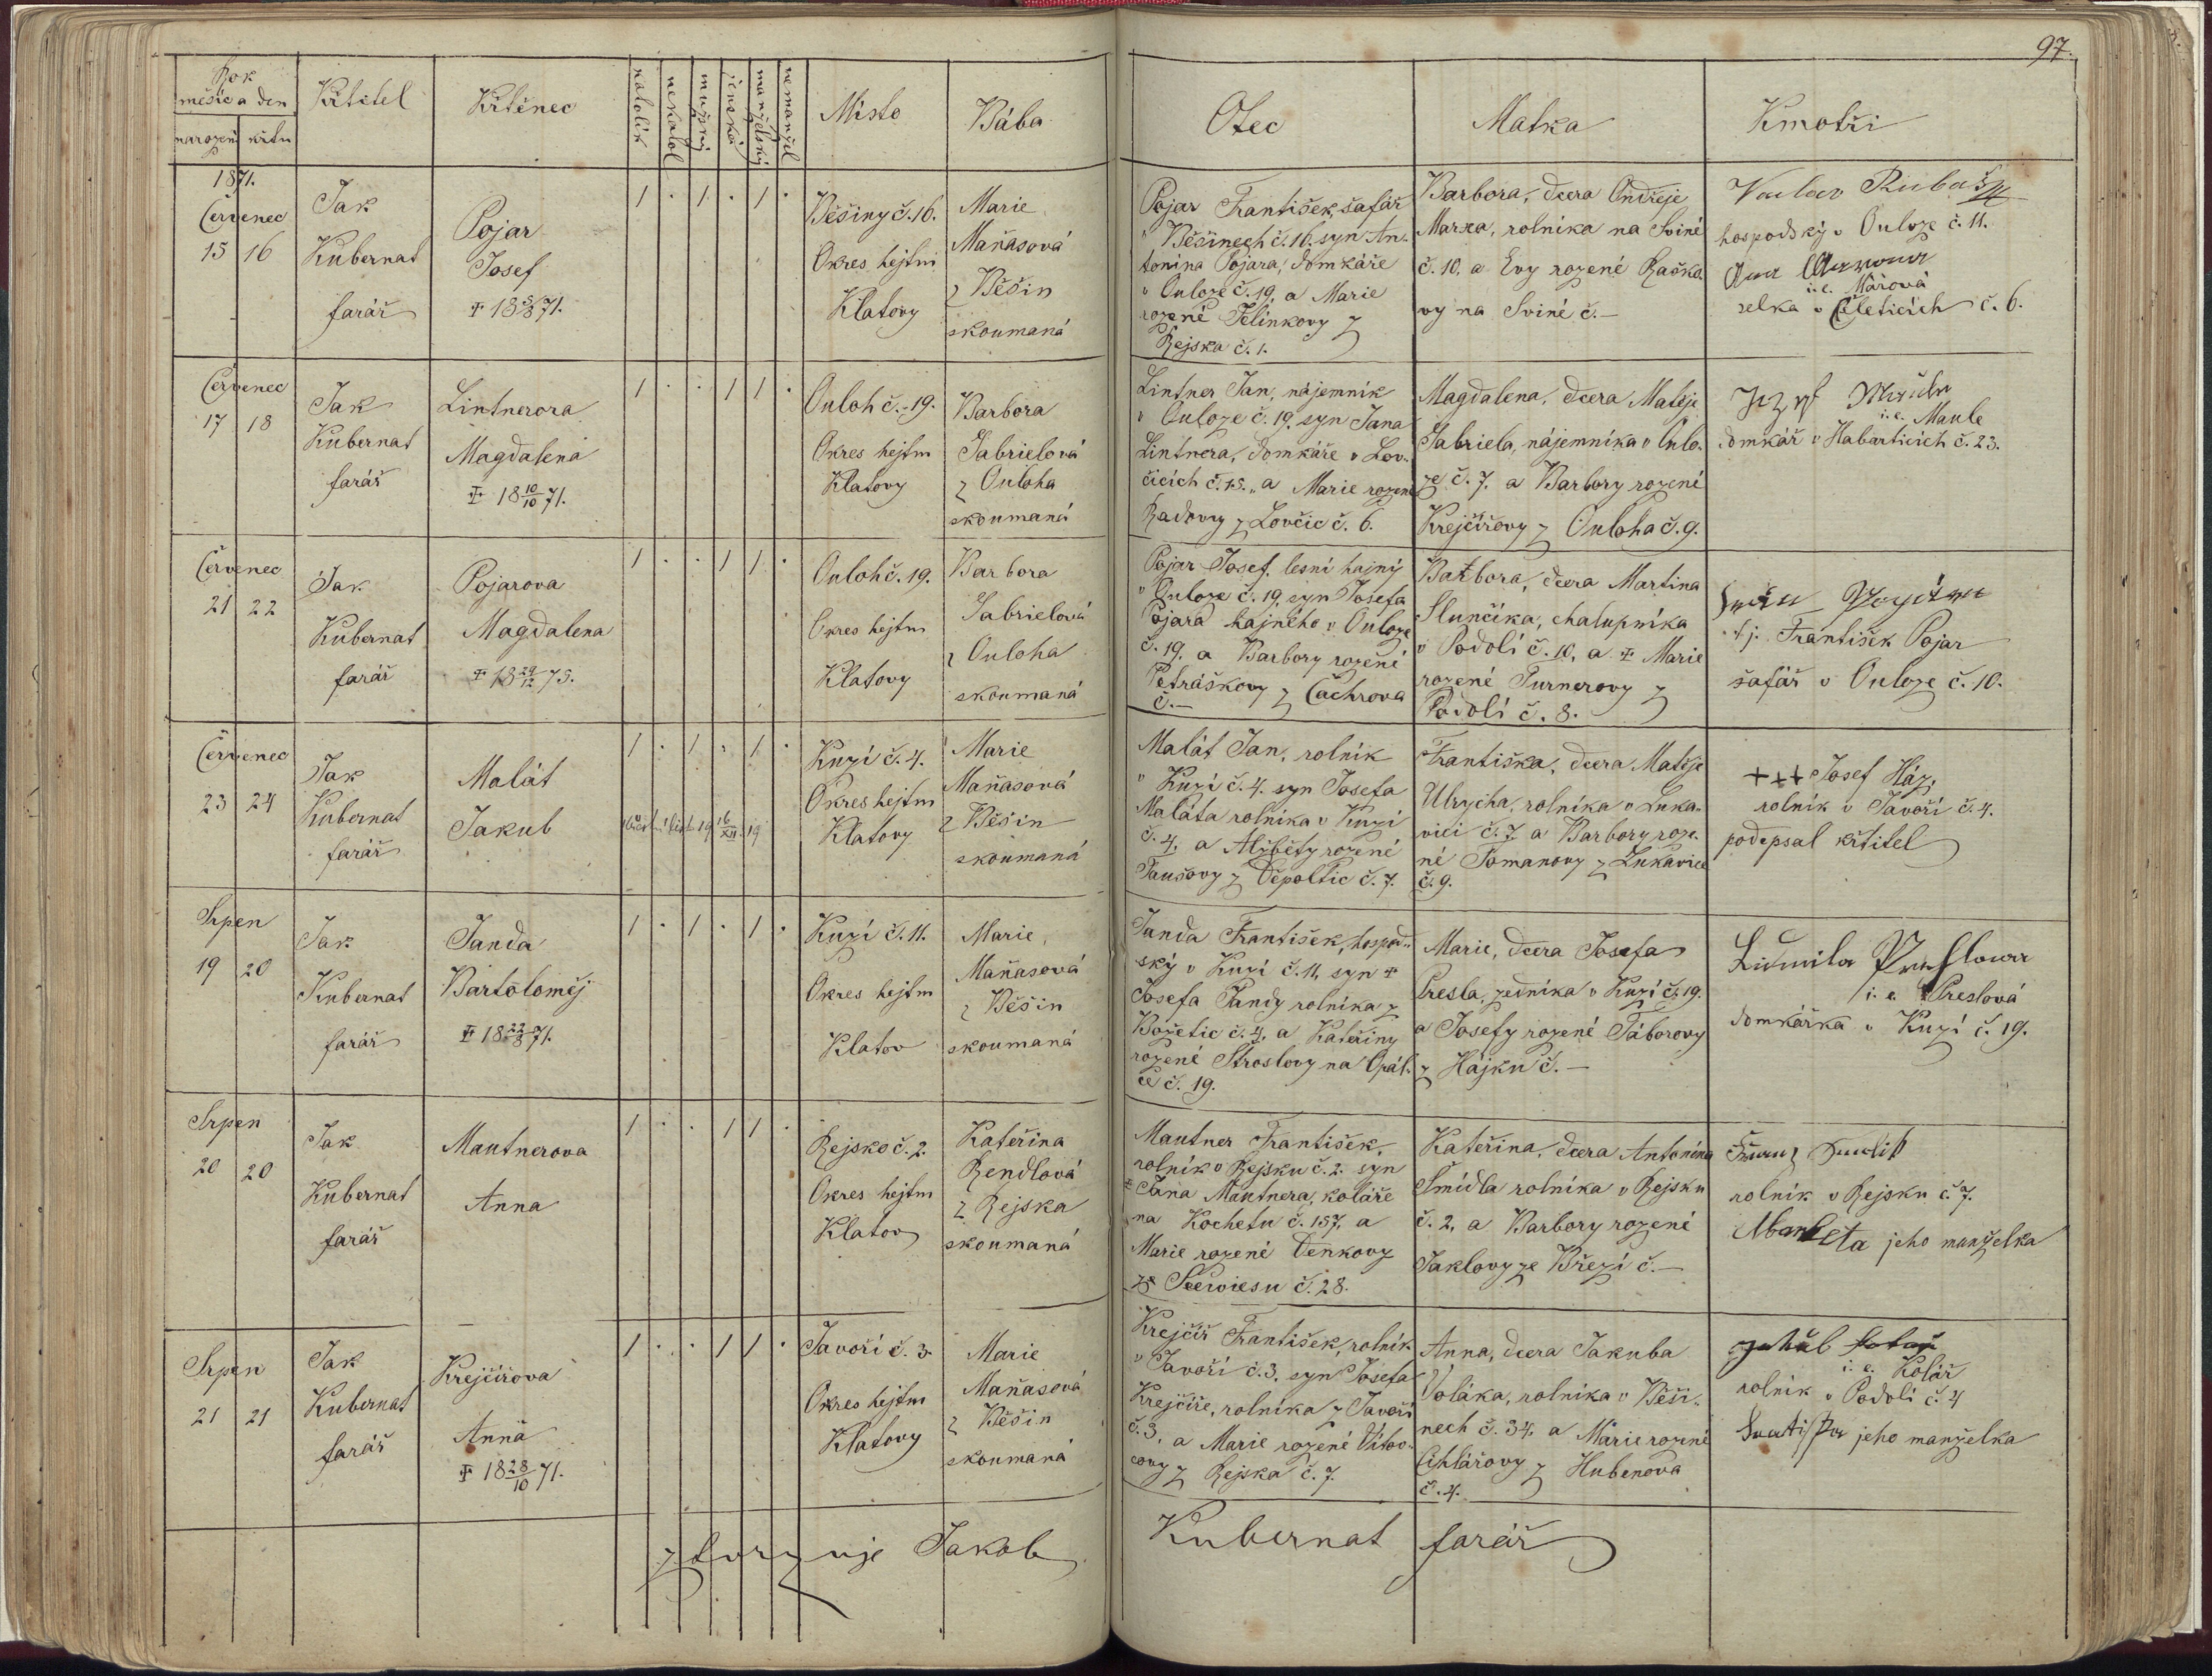 97.
Rok
měsíc a den
narození křtu
Křtitel
Křtěnec
katolík
nekatol
mužský
ženská
manželský
nemanžel
Místo
Bába
Otec
Matka
Kmotři
1871.
Červenec
15 16
Jak
Kubernat
farář
Pojar
Josef
1 . 1 . 1 .
Běšiny č. 16.
Okres hejtm
Klatovy
Marie
Maňasová
z Běšin
skoumaná
Pojar František, šafář
v Běšinech č. 16. syn An-
tonína Pojara, domkáře
v Ouloze č. 19, a Marie
rozené Jelínkovy z
Rejska č. 1.
Barbora, dcera Ondřeje
Marka, rolníka na Sviné
č. 10, a Evy rozené Raško
vy na Sviné č. —
Václav
hospodský v Ouloze č. 11.
i. e. Márová
selka v č. 6.
Červenec
17 18
Jak
Kubernat
farář
Lintnerova
Magdalena
‡ 18 10/10 71.
1 . . 1 1 .
Ouloh č. 19.
Okres hejtm
Klatovy
Barbora
Gabrielová
z Ouloha
skoumaná
Lintner Jan, nájemník
v Ouloze č. 19, syn Jana
Lintnera, domkáře v Lov-
čicích č. 15., a Marie rozené
Radovy z Lovčic č. 6.
Magdalena, dcera Matěje
Gabriela, nájemníka v Oulo-
ze č. 7. a Barbory rozené
Krejčířovy z Ouloha č. 9.
i. e. Maule
domkář v Habarticích č. 23.
Červenec
21 22
Jak
Kubernat
farář
Pojarova
Magdalena
1 . . 1 1 .
Ouloh č. 19.
Okres hejtm
Klatovy
Barbora
Gabrielová
z Ouloha
skoumaná
Pojar Josef, lesní hajný
v Ouloze č. 19, syn Josefa
Pojara hajného v Ouloze
č. 19, a Barbory rozené
Petráškovy z Čachrova
č. —
Barbora, dcera Martina
Slunčíka, chalupníka
v Podolí č. 10, a ‡ Marie
rozené Turnerovy z
Podolí č. 8.
t. j. František Pojar
šafář v Ouloze č. 10.
Červenec
23 24
Jak
Kubernat
farář
Malát
Jakub
1 . 1 . 1 .
Kuzí č. 4.
Okres hejtm
Klatovy
Marie
Maňasová
z Běšin
skoumaná
Malát Jan, rolník
v Kuzí č. 4. syn Josefa
Maláta rolníka v Kuzí
č. 4, a Alžběty rozené
Taušovy z Děpoltic č. 7.
Františka, dcera Matěje
Ulrycha, rolníka v Luka-
vici č. 7. a Barbory roze-
né Tomanovy z Lukavice
č. 9.
+++ Josef Ház,
rolník v Javoří č. 4.
podepsal křtitel
Srpen
19 20
Jak
Kubernat
farář
Janda
Bartoloměj
‡ 18 22/8 71.
1 . 1 . 1 .
Kuzí č. 11.
Okres hejtm
Klatov
Marie
Maňasová
z Běšin
skoumaná
Janda František, hospod-
ský v Kuzí č. 11, syn ‡
Josefa Jandy rolníka z
Božetic č. 4, a Kateřiny
rozené Stroslovy na Opál-
ce č. 19.
Marie, dcera Josefa
Presla, zedníka v Kuzí č. 19.
a Josefy rozené Táborovy
z Hájku č. —
Ludmila
i. e. Preslová
domkářka v Kuzí č. 19.
Srpen
20 20
Jak
Kubernat
farář
Mautnerova
Anna
1 . . 1 1 .
Rejsko č. 2.
Okres hejtm
Klatov
Kateřina
Rendlová
z Rejska
skoumaná
Mautner František,
rolník v Rejsku č. 2. syn
‡ Jana Mautnera, koláře
na Kochetu č. 157, a
Marie rozené Denkovy
ze Seewiesu č. 28.
Kateřina, dcera Antonína
Šmídla rolníka v Rejsku
č. 2, a Barbory rozené
Jaklovy ze Březí č. —
rolník v Rejsku č. 7.
jeho manželka
Srpen
21 21
Jak
Kubernat
farář
Krejčířova
Anna
‡ 18 28/10 71.
1 . . 1 1 .
Javoří č. 3.
Okres hejtm
Klatovy
Marie
Maňasová
z Běšin
skoumaná
Krejčíř František, rolník
v Javoří č. 3, syn Josefa
Krejčíře, rolníka z Javoří
č. 3, a Marie rozené Vítov-
covy z Rejska č. 7.
Anna, dcera Jakuba
Voláka, rolníka v Běši-
nech č. 34, a Marie rozené
Cihlářovy z Hubenova
č. 4.
i. e. Kolář
rolník v Podolí č. 4
jeho manželka
ztvrzuje Jakob Kubernat farář